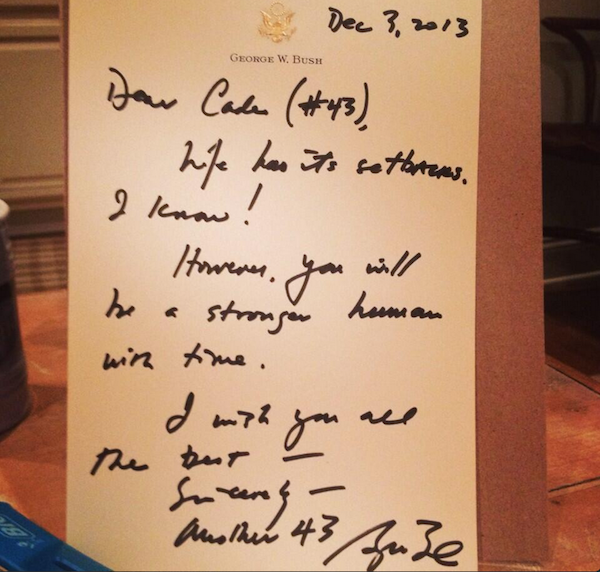 Dec 3, 2013
GEORGE W. BUSH
Dear Cade (#43),
Life has its setbacks.
I know!
However, you will
be a stronger human
with time.
I wish you all
the best —
Sincerely —
Another 43